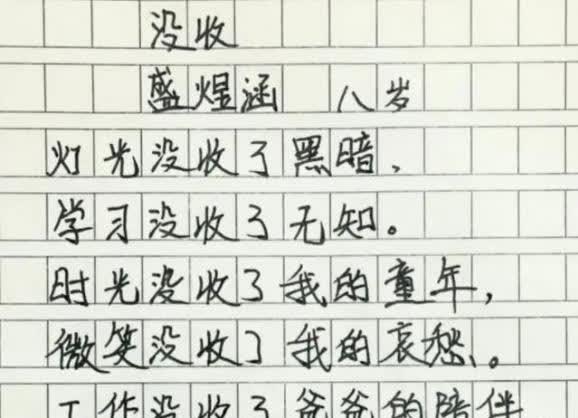 没收
盛煜涵 八岁
灯光没收了黑暗、
学习没收了无知。
时光没收了我的童年，
微笑没收了我的哀愁。
工作没收了爸爸的陪伴